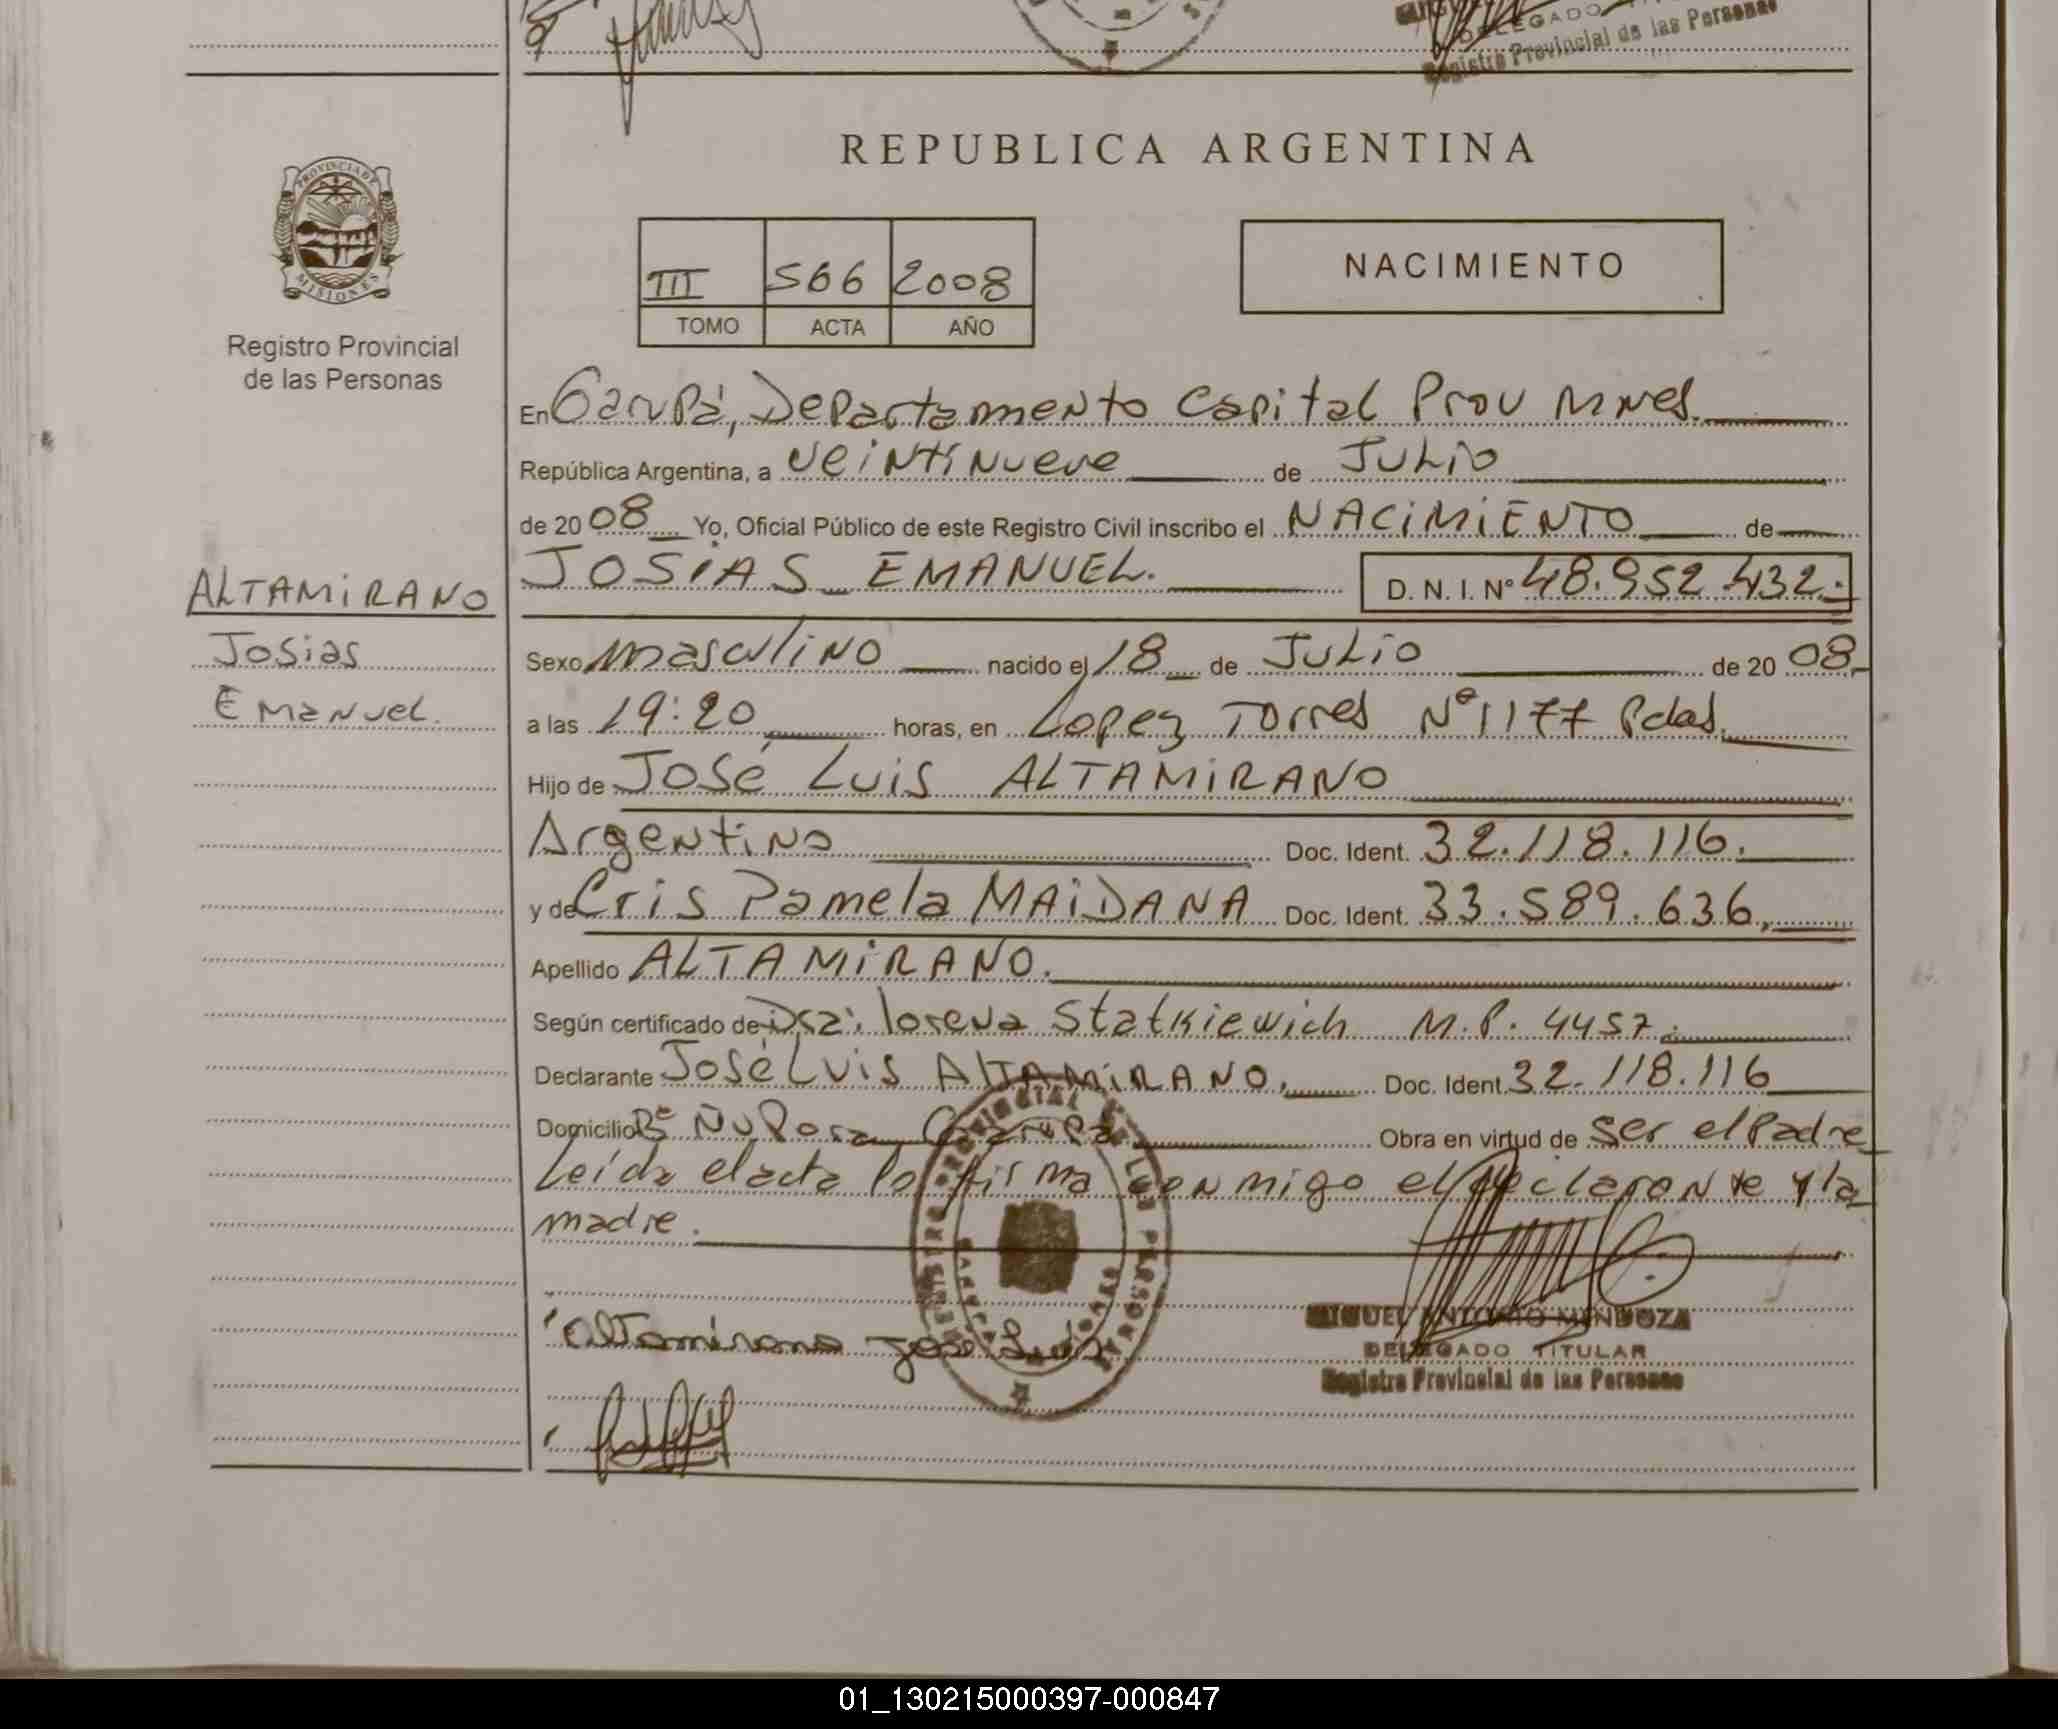 DELEGADO
Registro Provincial de las Personas
REPUBLICA ARGENTINA
PROVINCIA DE
MISIONES
Registro Provincial
de las Personas
III 566 2008
TOMO ACTA AÑO
NACIMIENTO
En Garupá, Departamento Capital Prov Mnes.
República Argentina, a veintinueve de Julio
de 2008 Yo, Oficial Público de este Registro Civil inscribo el NACIMIENTO de
JOSIAS EMANUEL. D. N. I. Nº 48.952.432.-
ALTAMIRANO
Josias
Emanuel.
Sexo masculino nacido el 18 de Julio de 2008.-
a las 19:20 horas, en Lopez Torres Nº 1177 Pdas.
Hijo de José Luis ALTAMIRANO
Argentino Doc. Ident. 32.118.116.
y de Cris Pamela MAIDANA Doc. Ident. 33.589.636.
Apellido ALTAMIRANO.
Según certificado de Dra. lorena Statkiewich M.P. 4457.
Declarante José Luis AlTAMIRANO. Doc. Ident. 32.118.116
Domicilio Bº Ñu Pora Garupá Obra en virtud de ser el Padre
Leída el acta la firma conmigo el declarante y la
madre.
REGISTRO PROVINCIAL DE LAS PERSONAS
GARUPA
MISIONES
Altamirano Jose Luis
MIGUEL ANTONIO MENDOZA
DELEGADO TITULAR
Registro Provincial de las Personas
01_130215000397-000847